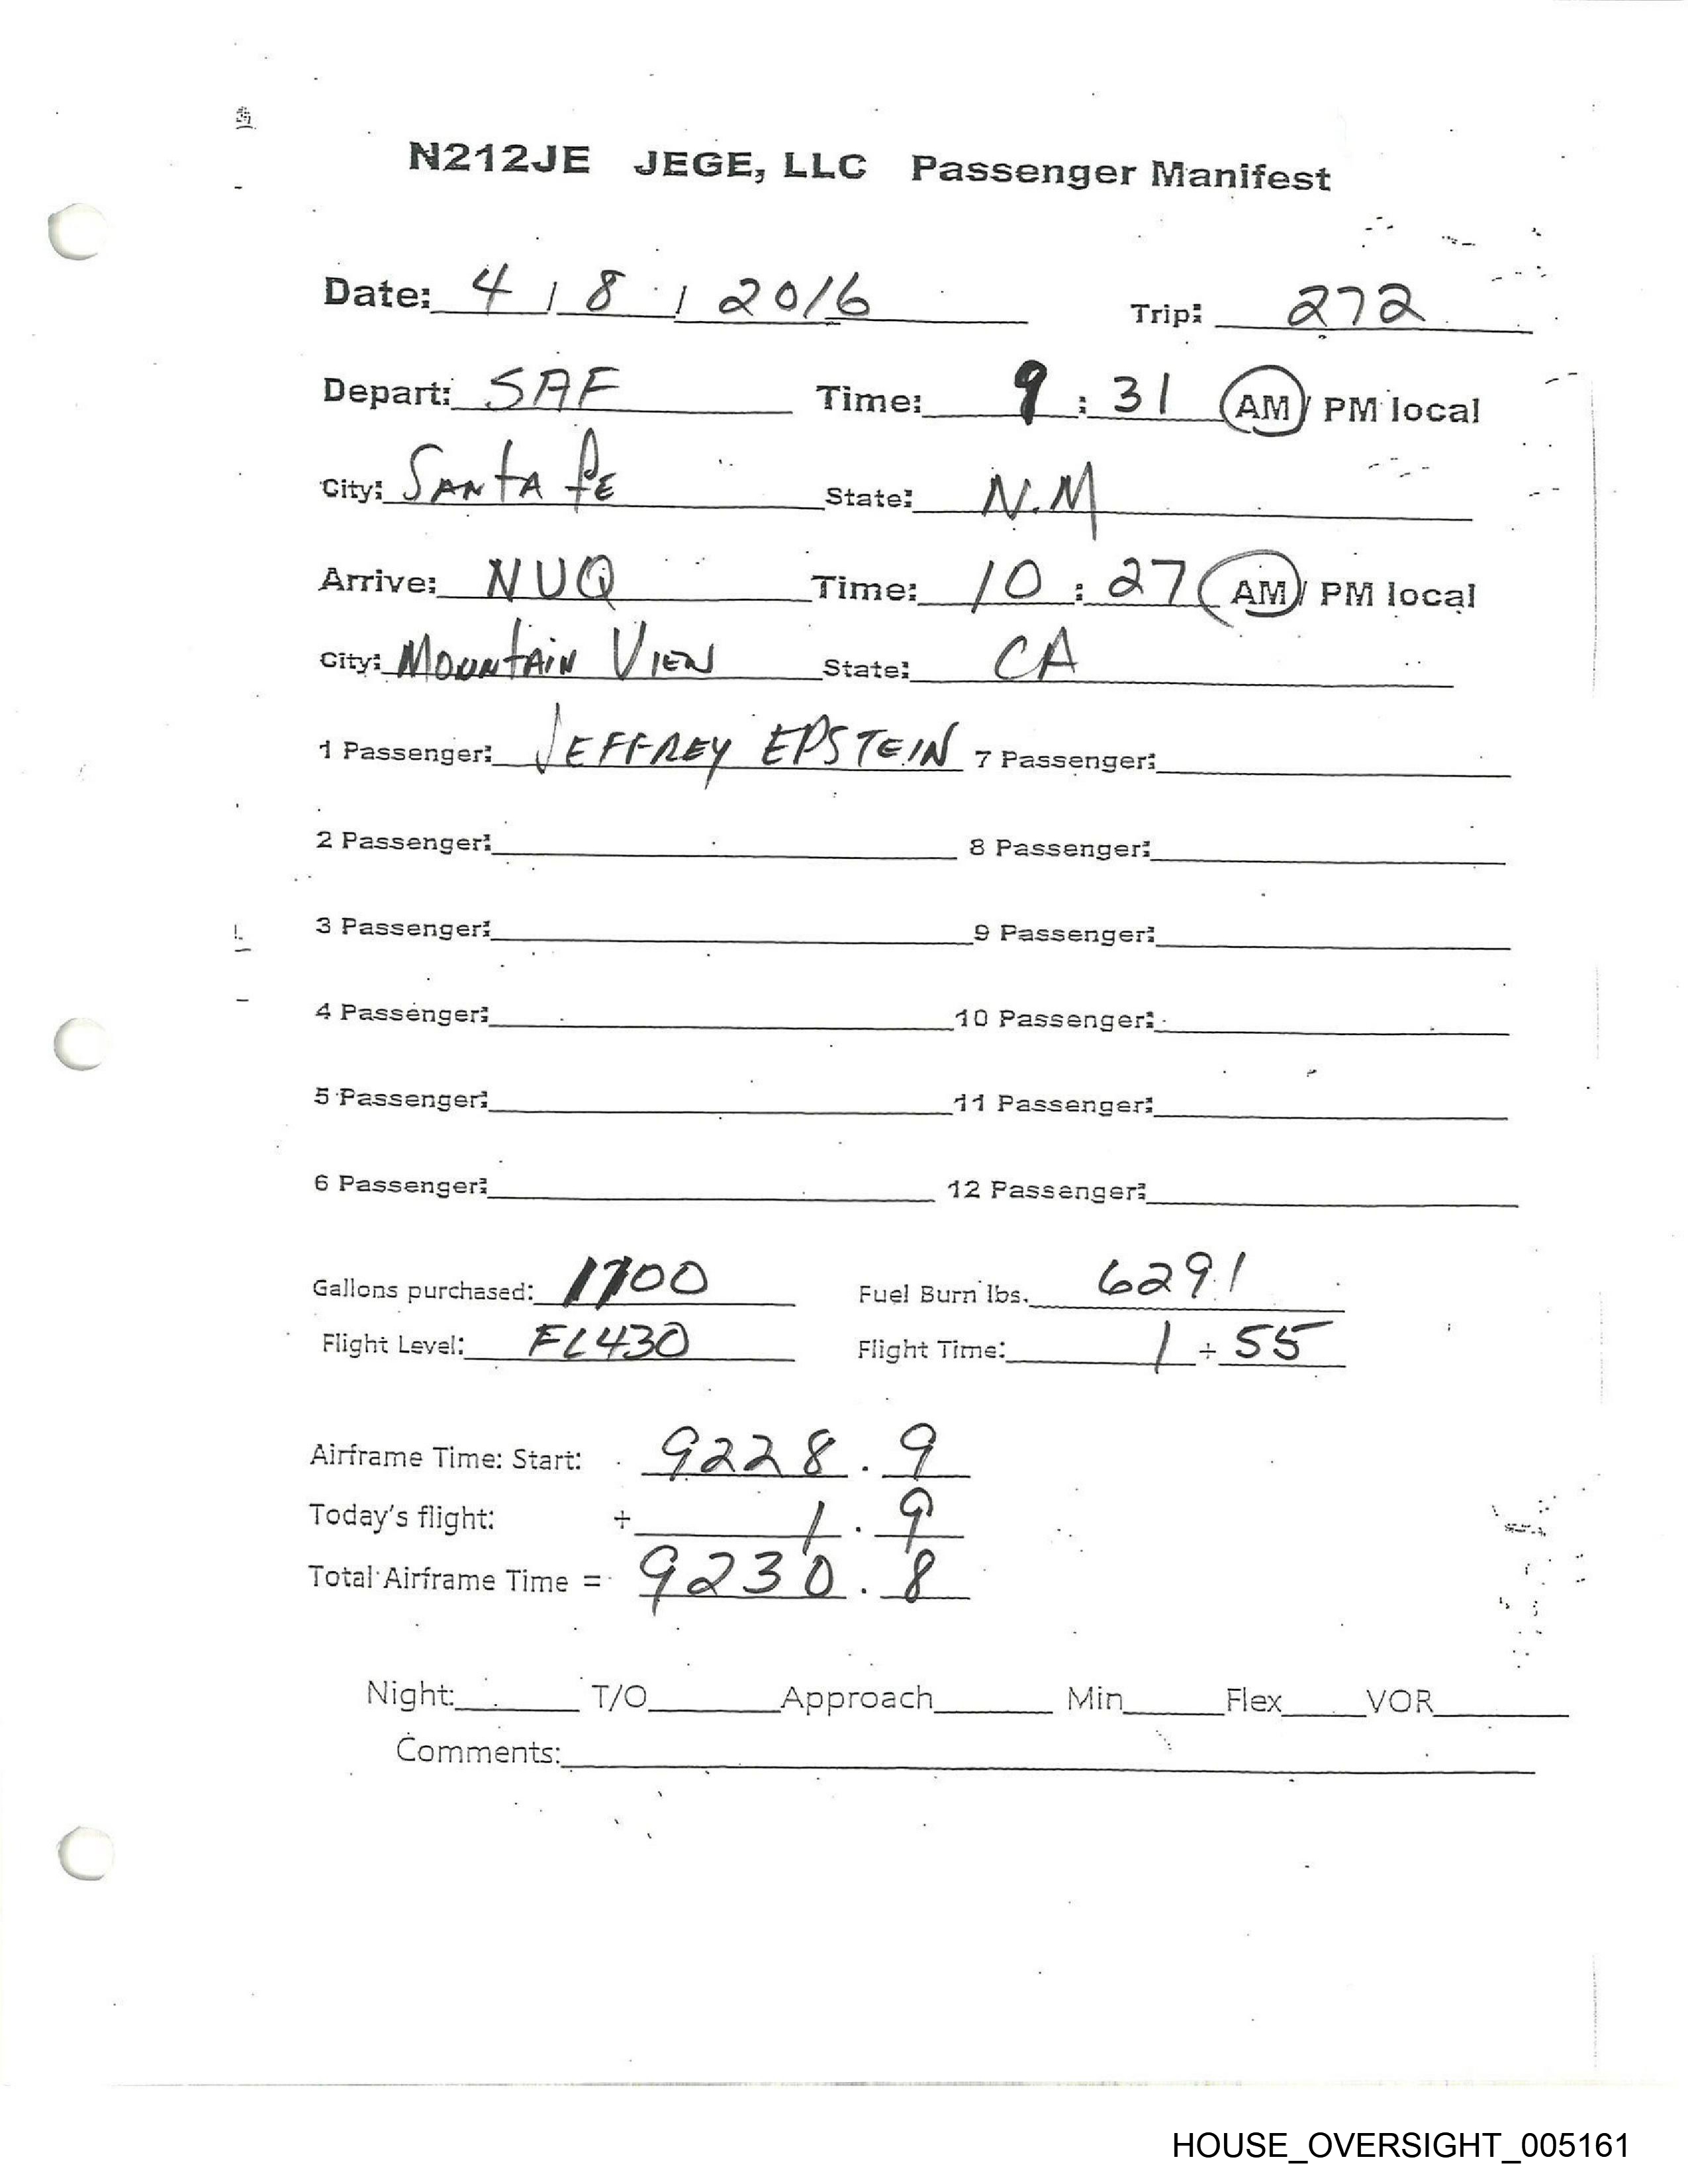 N212JE JEGE, LLC Passenger Manifest
Date: 4 / 8 / 2016 Trip: 272
Depart: SAF Time: 9 : 31 AM / PM local
City: SANTA FE State: N.M
Arrive: NUQ Time: 10 : 27 AM / PM local
City: MOUNTAIN VIEW State: CA
1 Passenger: JEFFREY EPSTEIN 7 Passenger:
2 Passenger: 8 Passenger:
3 Passenger: 9 Passenger:
4 Passenger: 10 Passenger:
5 Passenger: 11 Passenger:
6 Passenger: 12 Passenger:
Gallons purchased: 1700 Fuel Burn lbs. 6291
Flight Level: FL430 Flight Time: 1 + 55
Airframe Time: Start: 9228 . 9
Today's flight: + 1 . 9
Total Airframe Time = 9230 . 8
Night: T/O Approach Min Flex VOR
Comments:
HOUSE_OVERSIGHT_005161